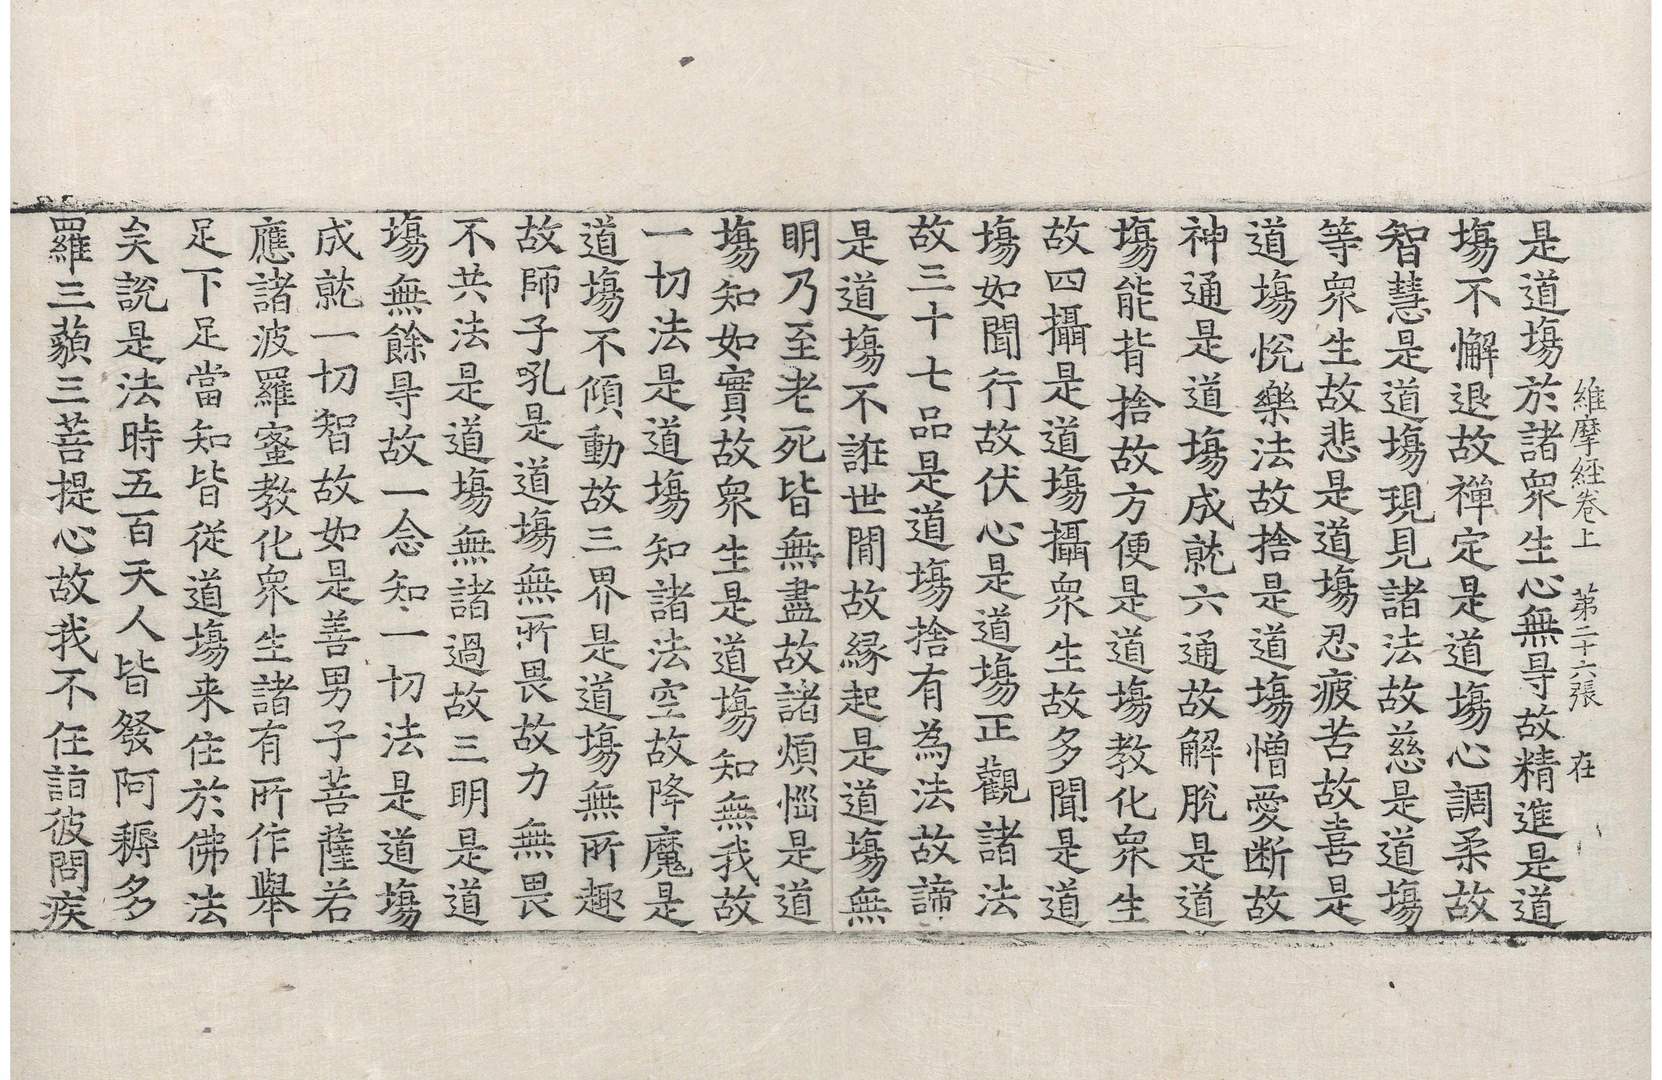 維摩經卷上　第二十六張　在
是道塲於諸衆生心無㝵故精進是道
塲不懈退故禪定是道塲心調柔故
智慧是道塲現見諸法故慈是道塲
等衆生故悲是道塲忍疲苦故喜是
道塲悅樂法故捨是道塲憎愛断故
神通是道塲成就六通故解脫是道
塲能背捨故方便是道塲教化衆生
故四攝是道塲攝衆生故多聞是道
塲如聞行故伏心是道塲正觀諸法
故三十七品是道塲捨有為法故諦
是道塲不誑世間故縁起是道塲無
明乃至老死皆無盡故諸煩惱是道
塲知如實故衆生是道塲知無我故
一切法是道塲知諸法空故降魔是
道塲不傾動故三界是道塲無所趣
故師子吼是道塲無所畏故力無畏
不共法是道塲無諸過故三明是道
塲無餘㝵故一念知一切法是道塲
成就一切智故如是善男子菩薩若
應諸波羅蜜教化衆生諸有所作舉
足下足當知皆從道塲来住於佛法
矣說是法時五百天人皆發阿耨多
羅三藐三菩提心故我不任詣彼問疾